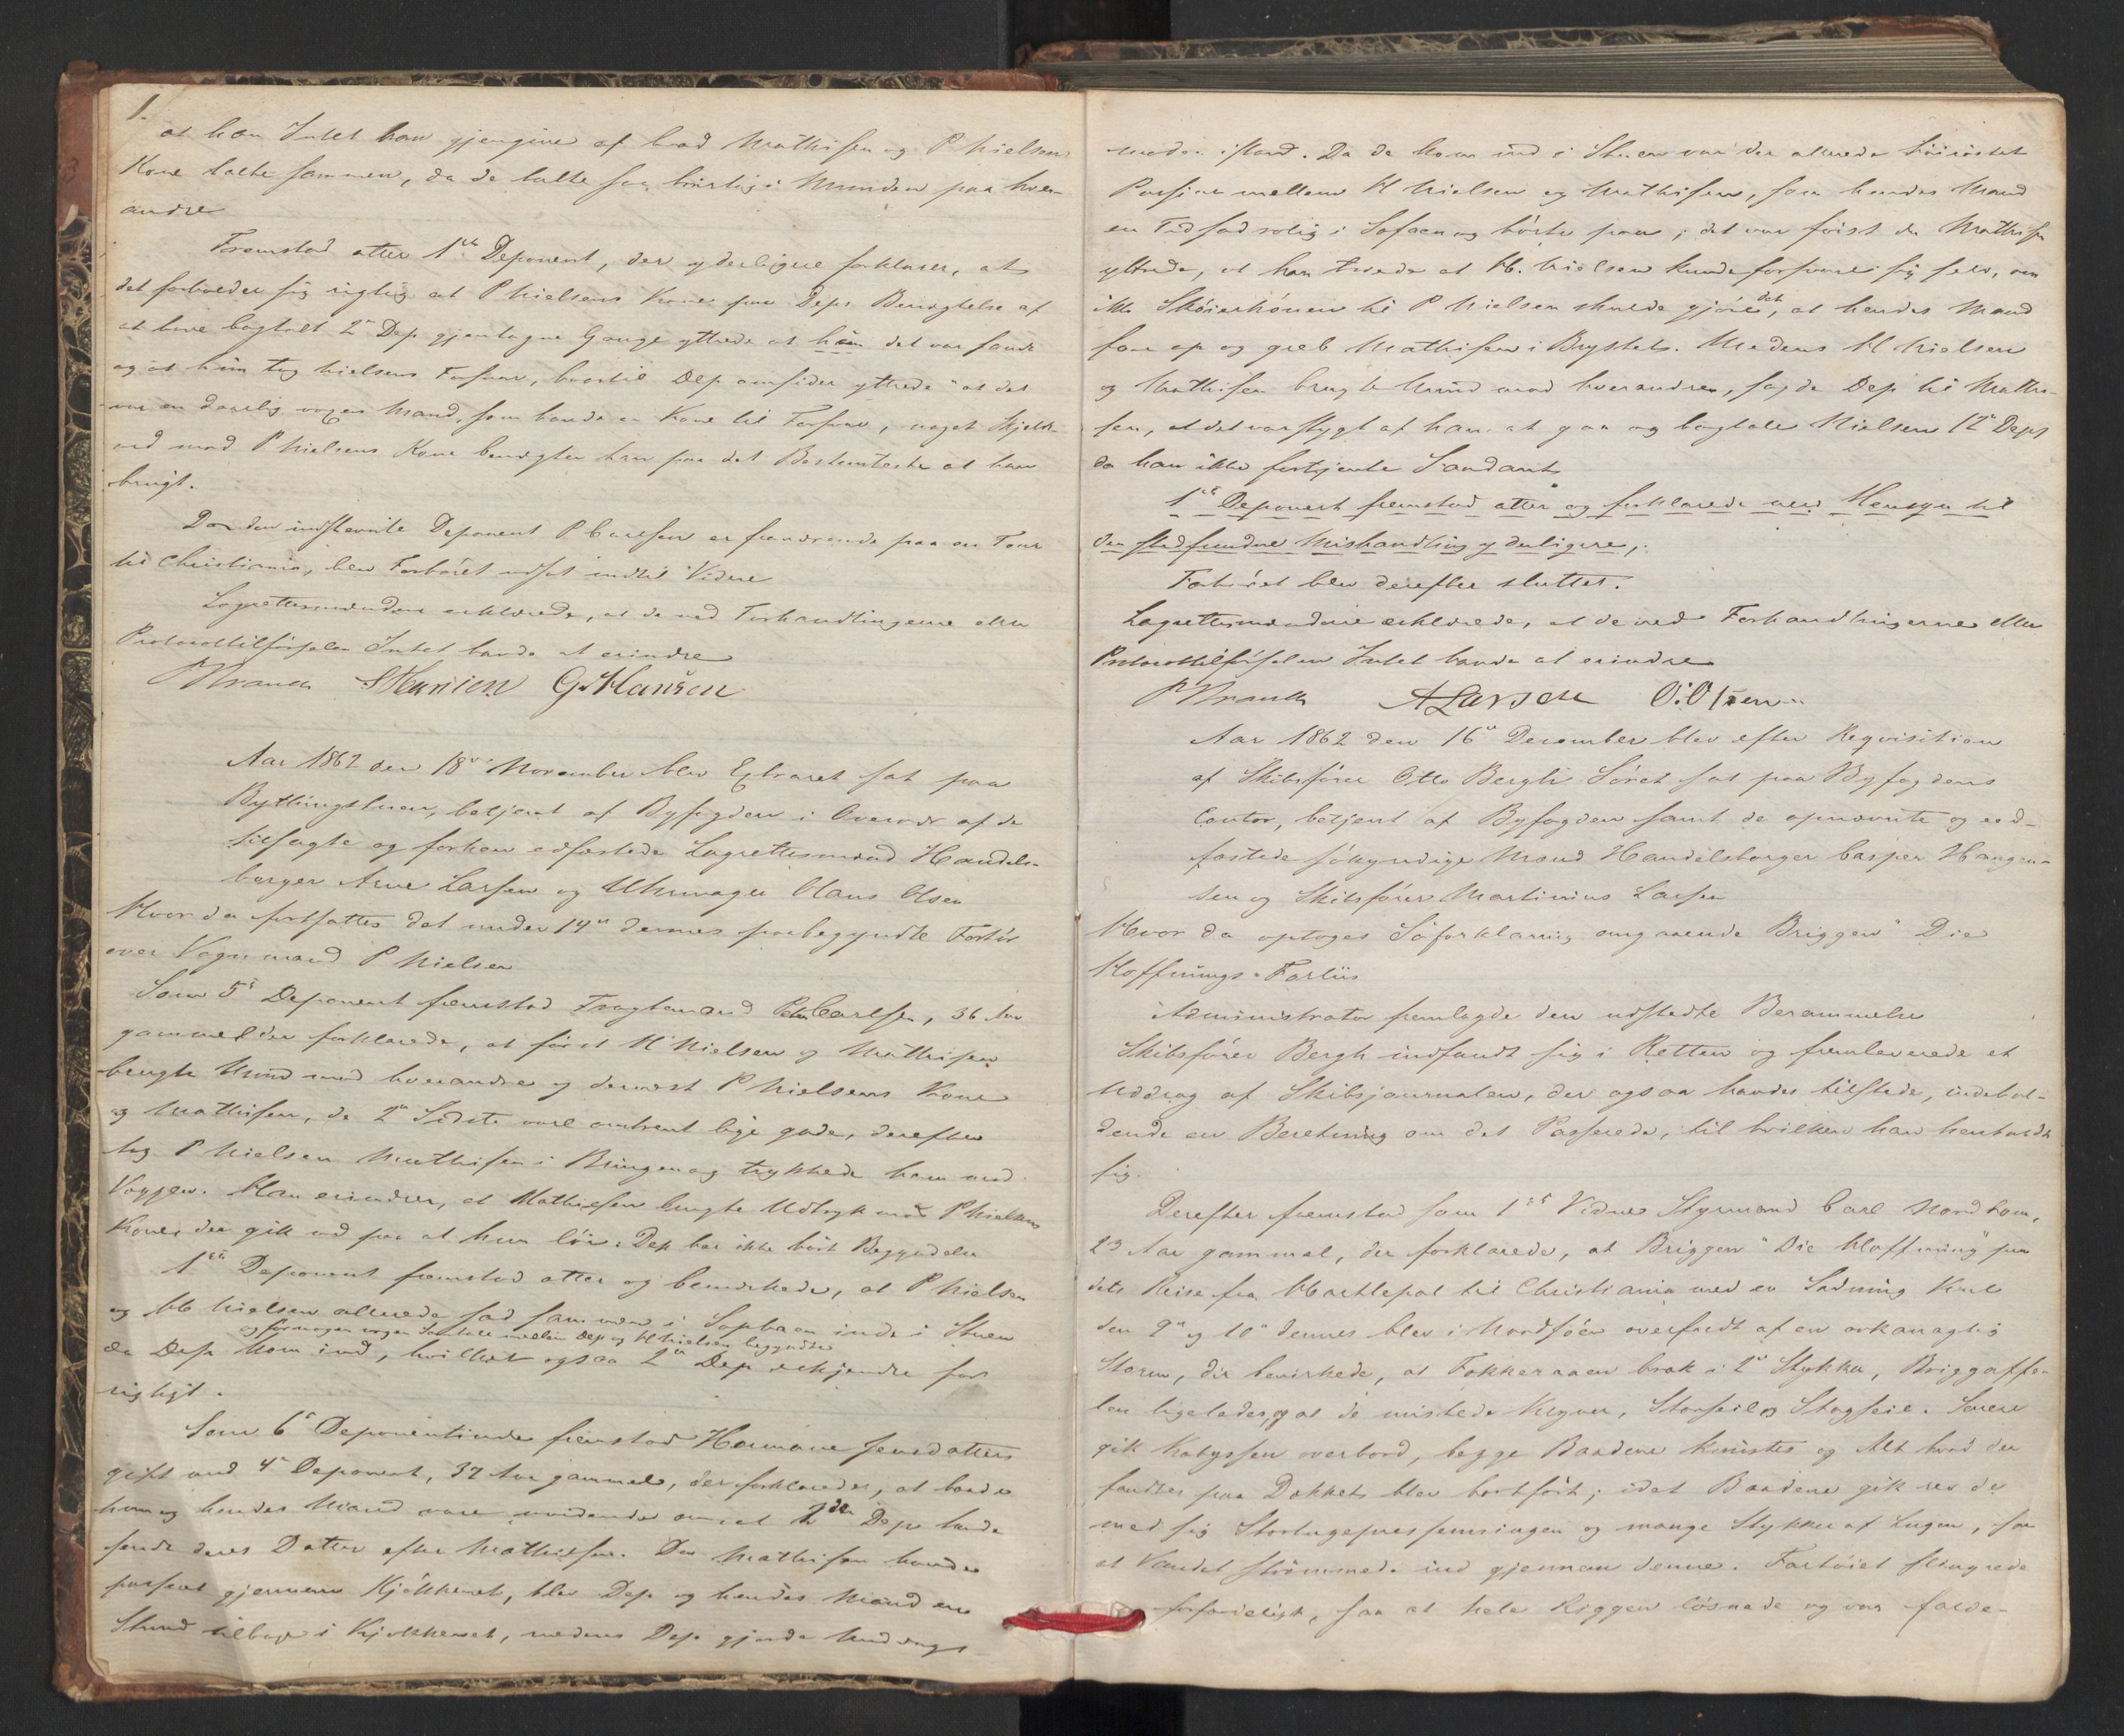 1.
at han Intet kan gjengive af hvad Mathisen og P Nielsens
Kone talte sammen, da de talte saa hurtig i Munden paa hver-
andre
Fremstod atter 1ste Deponent, der yderligere forklarer, at
det forholder sig rigtig at P Nielsens Kone paa Deps Benægtelse af
at have bagtalt 2den Dep gjentagne Gange yttrede at hün det var sandt
og at hün tog Nielsens Forsvar, hvortil Dep omsider yttrede "at det
var en daarlig voxen Mand, som havde en Kone til Forsvar, noget Skjelds-
ord mod P Nielsens Kone benægter han paa det Bestemteste at have
brugt.
Da den indstevnte Deponent P Carlsen er fraværende paa en Tour
til Christiania, blev Forhöret udsat indtil Videre
Lagrettesmændene erklærede, at de ved Forhandlingerne eller
Protocoltilförselen Intet havde at erindre
S Hansen G. Hansen
Aar 1862 den 18de November blev Extraret sat paa
Bythingstuen, betjent af Byfogden i Overvær af de
tilsagte og forhen edfæstede Lagrettesmænd Handels-
borger Arne Larsen og Uhrmager Olaus Olsen
Hvor da fortsattes det under 14de dennes paabegyndte Forhör
over Vognmand P Nielsen
Som 5te Deponent fremstod Fragtemand Peter Carlsen, 36 Aar
gammel der forklarede, at först H Nielsen og Mathisen
brugte Mund mod hverandre og dernæst P Nielsens Kone
og Mathisen, de 2de Sidste vare omtrent lige gode, derefter
tog P Nielsen Mathisen i Bringen og trykkede ham mod
Væggen. Han erindrer, at Mathisen brugte Udtryk mod P Nielsens
Kone, der gik ud paa at hun löi. Dep har ikke hört Begyndelsen
1ste Deponent fremstod atter og bemærkede, at P Nielsen
og H Nielsen allerede sad sammen i Sophaen inde i Stuen
og förinden nogen Samtale mellem Dep og H Nielsen begyndte
da Dep kom ind, hvilket ogsaa 2den Dep erkjendte for
rigtigt.
Som 6te Deponentinde fremstod Hermane Jensdatter
gift med 4de Deponent, 37 Aar gammel, der forklarede, at baade
hun og hendes Mand vare uvidende om at 2den Dep havde
sendt deres Datter efter Mathisen. Da Mathisen havde
passeret gjennem Kjökkenet, blev Dep og hendes Mand en
Stund tilbage i Kjökkenet, medens Dep gjorde Middags-
maden istand. Da de kom ind i Stuen var der allerede höiröstet
Passiar mellem H Nielsen og Mathisen, som hendes Mand
en Tid sad rolig i Sofaen og hörte paa; det var först da Mathisen
yttrede, at han troede at H. Nielsen kunde forsvare sig selv, om
ikke Sköierkonen til P Nielsen skulde gjöre det, at hendes Mand
foer op og greb Mathisen i Brystet. Medens H Nielsen
og Mathisen brugte Mund mod hverandre, sagde Dep til Mathi-
sen, at det var stygt af ham at gaa og bagtale Nielsen 12te Deps
da han ikke fortjente Saadant
1ste Deponent fremstod atter og forklarede med Hensyn til
den stedfundne Mishandling yderligere,.
Forhöret blev derefter sluttet.
Lagrettesmændene erklærede, at de ved Forhandlingerne eller
Protocoltilförselen Intet havde at erindre
A Larsen O. Olsen
Aar 1862 den 16de December blev efter Reqvisition
af Skibsförer Otto Bergh Söret sat paa Byfogdens
Contor, betjent af Byfogden samt de opnævnte og eed-
fæstede sökyndige Mænd Handelsborger Casper Haagen-
sen og Skibsförer Martinius Larsen
Hvor da optoges Söforklaring angaaende Briggen "Die
Hoffnungs" Forliis
Administrator fremlagde den udstedte Berammelse
Skibsförer Bergh indfandt sig i Retten og fremleverede et
Uddrag af Skibsjournalen, der ogsaa havdes tilstede, indehol-
dende en Beretning om det Passerede, til hvilken han henholdt
sig.
Derefter fremstod som 1ste Vidne Styrmand Carl Nordbom,
23 Aar gammel, der forklarede, at Briggen "Die Hoffnung" paa
dets Reise fra Hartlepol til Christiania med en Ladning Kul
den 9de og 10de dennes blev i Nordsöen overfaldt af en orkanagtig
Storm, der bevirkede, at Fokkeraaen brak i 2de Stykker, Briggaffe-
len ligeledes, og at de mistede Klyver, Storseil og Stagseil. Senere
gik Kabyssen overbord, begge Baadene knustes og Alt hvad der
fandtes paa Dækket blev bortfört; idet Baadene gik rev de
med sig Storlugepressenningen og mange Stykker af Lugen, saa
at Vandet strömmede ind gjennem denne. Fartöiet slingrede
forfærdeligt, saa at hele Riggen lösnede og var færde-